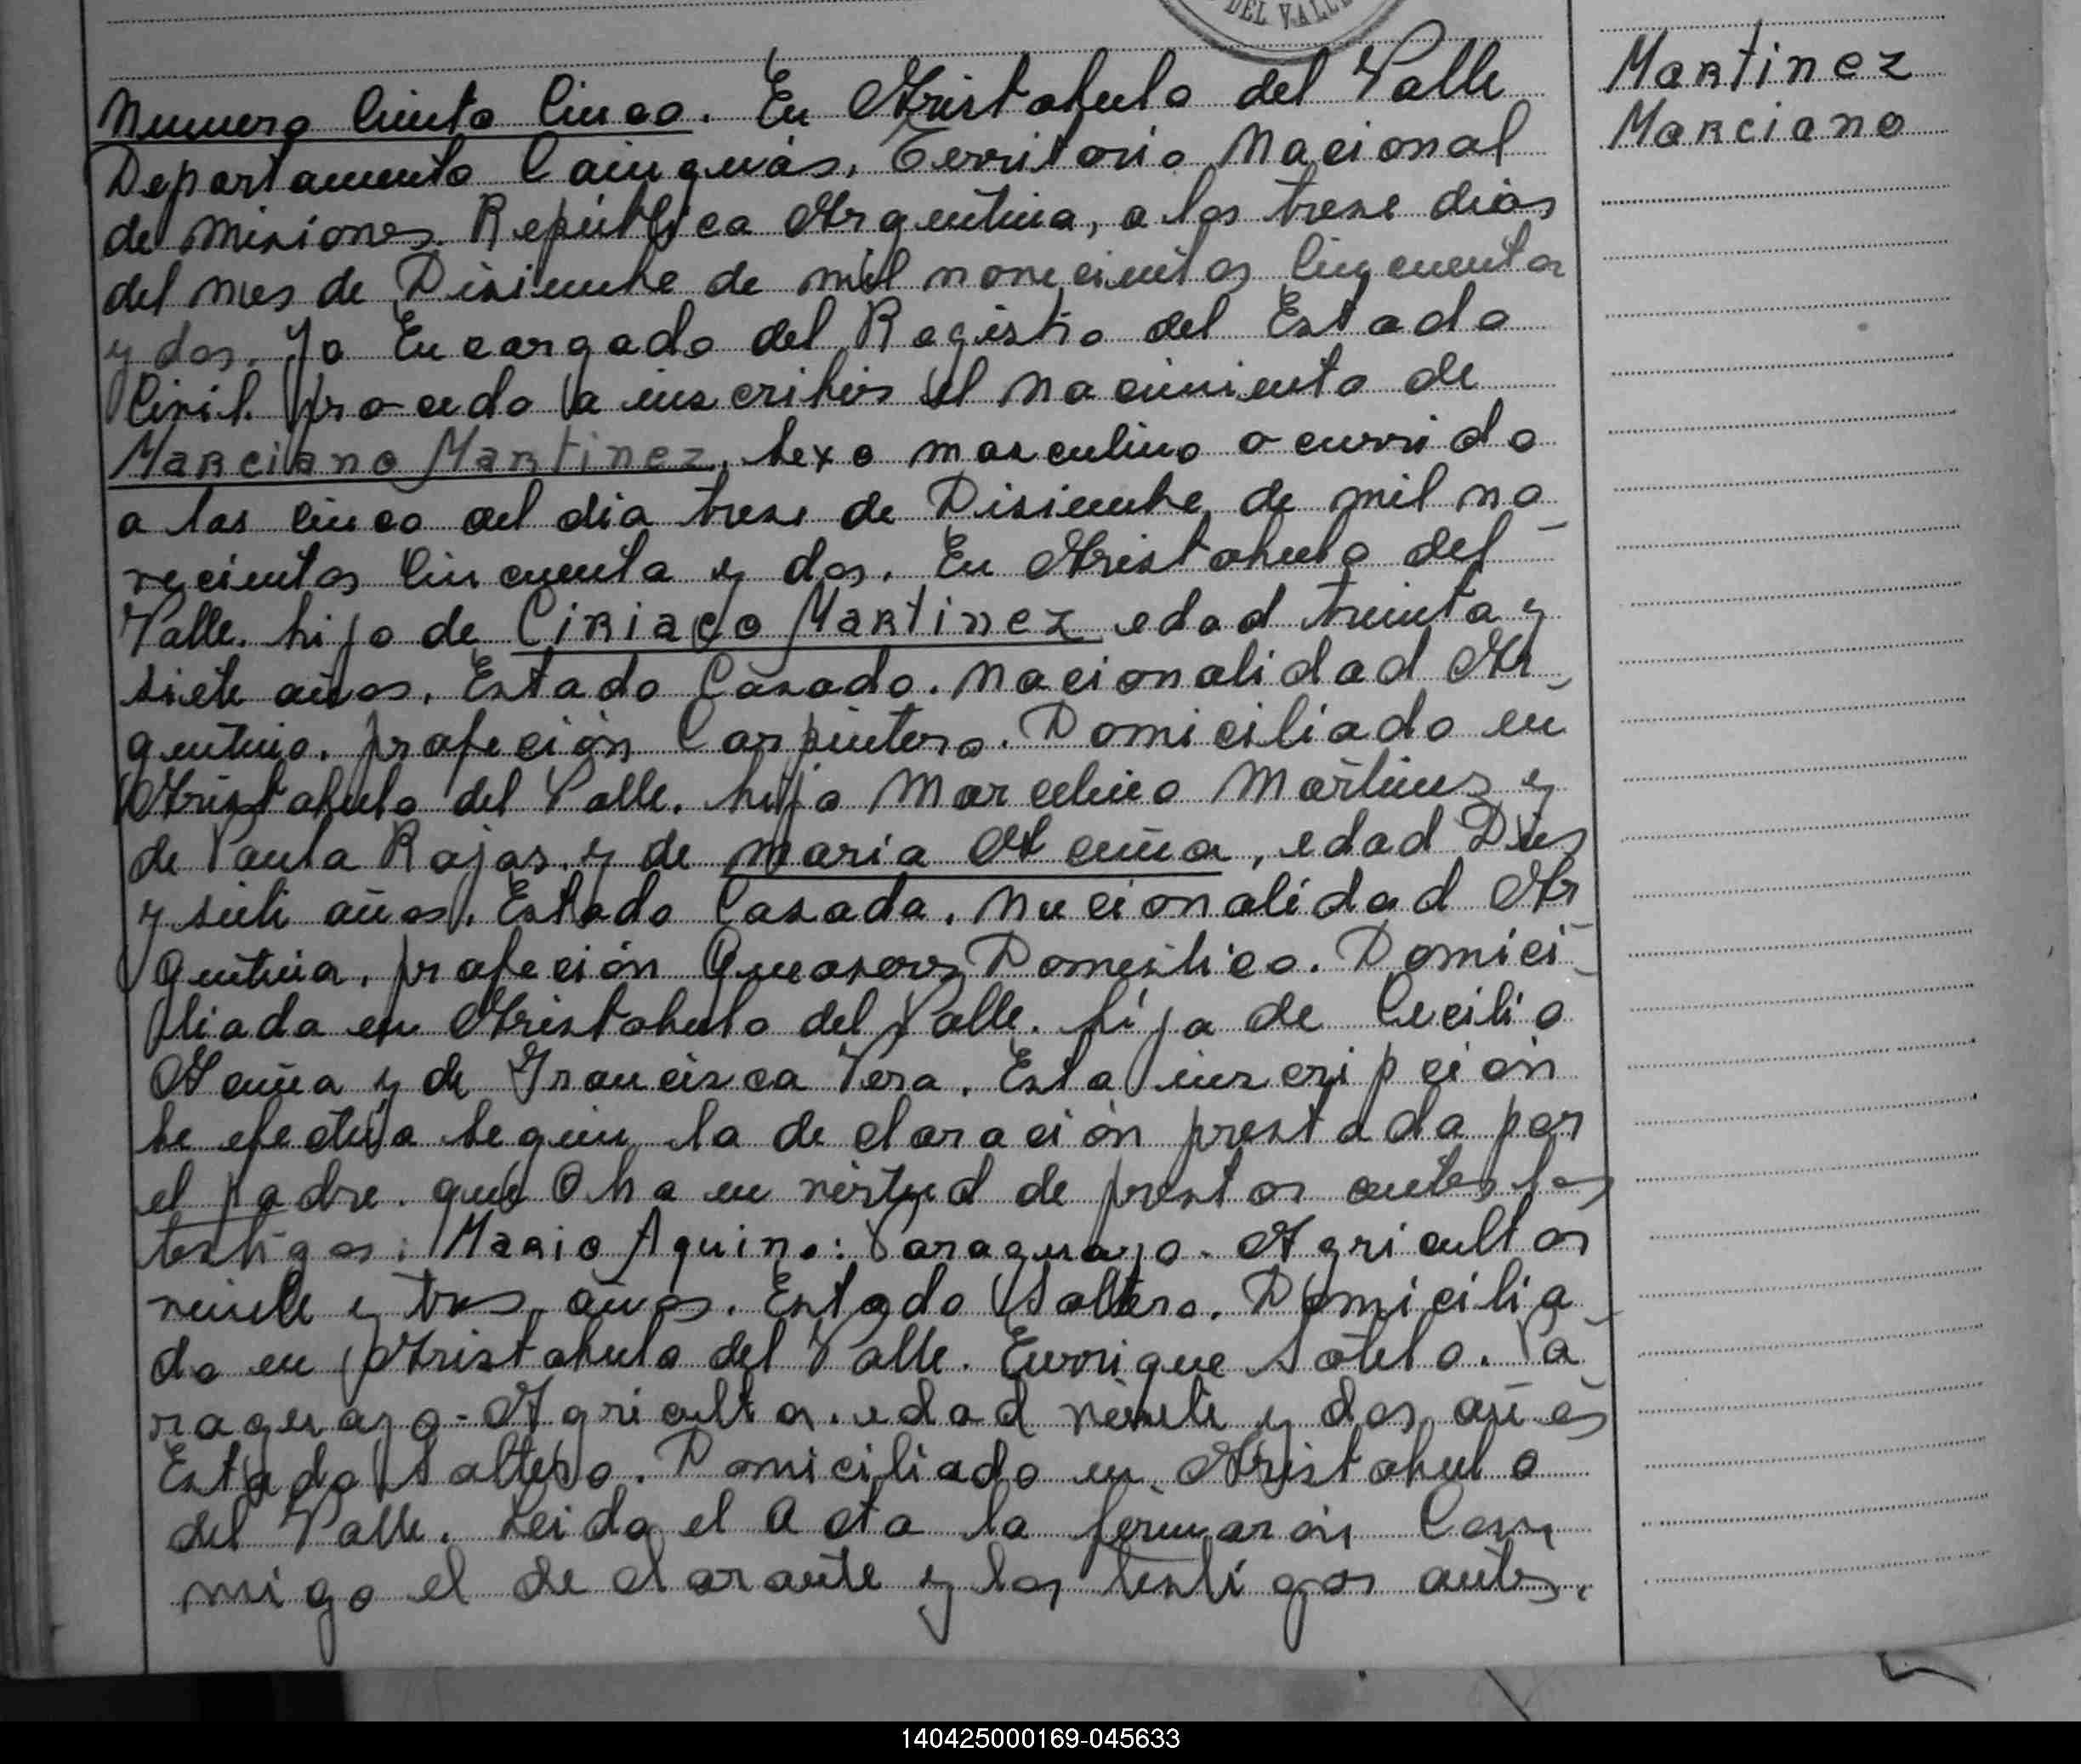 DEL VALLE
Martinez
Marciano
Numero Ciento Cinco. En Aristobulo del Valle
Departamento Cainguás, Territorio Nacional
de Misiones. República Argentina, a los trese dias
del mes de Disiembre de mil novecientos Cincuenta
y dos. Yo Encargado del Registro del Estado
Civil. procedo a inscribir el Nacimiento de
Marciano Martinez, sexo masculino ocurrido
a las cinco del dia trese de Disiembre de mil no
vecientos Cincuenta y dos. En Aristobulo del
Valle. hijo de Ciriaco Martinez edad treinta y
siete años. Estado Casado. Nacionalidad Ar-
gentino. profeción Carpintero. Domiciliado en
Aristobulo del Valle. hijo Marcelino Martinez y
de Paula Rojas y de Maria Acuña, edad Dies
y siete años. Estado Casada. Nacionalidad Ar
gentina. profeción Queaseres Domestico. Domici-
liada en Aristobulo del Valle. hija de Cecilio
Acuña y de Francisca Vera. Esta inscripción
se efectúa según la declaración prestada por
el padre. que Oha en virtud de prestos antes los
testigos: Mario Aquino: Paraguayo. Agricultor
veinte y tres años. Estado Soltero. Domicilia-
do en Aristobulo del Valle. Enrrique Sotelo. Pa-
raguayo-Agricultor. edad veinte y dos años
Estado Soltero. Domiciliado en Aristobulo
del Valle. Leida el Acta la firmarón Con
migo el declarante y los testigos antes.
140425000169-045633